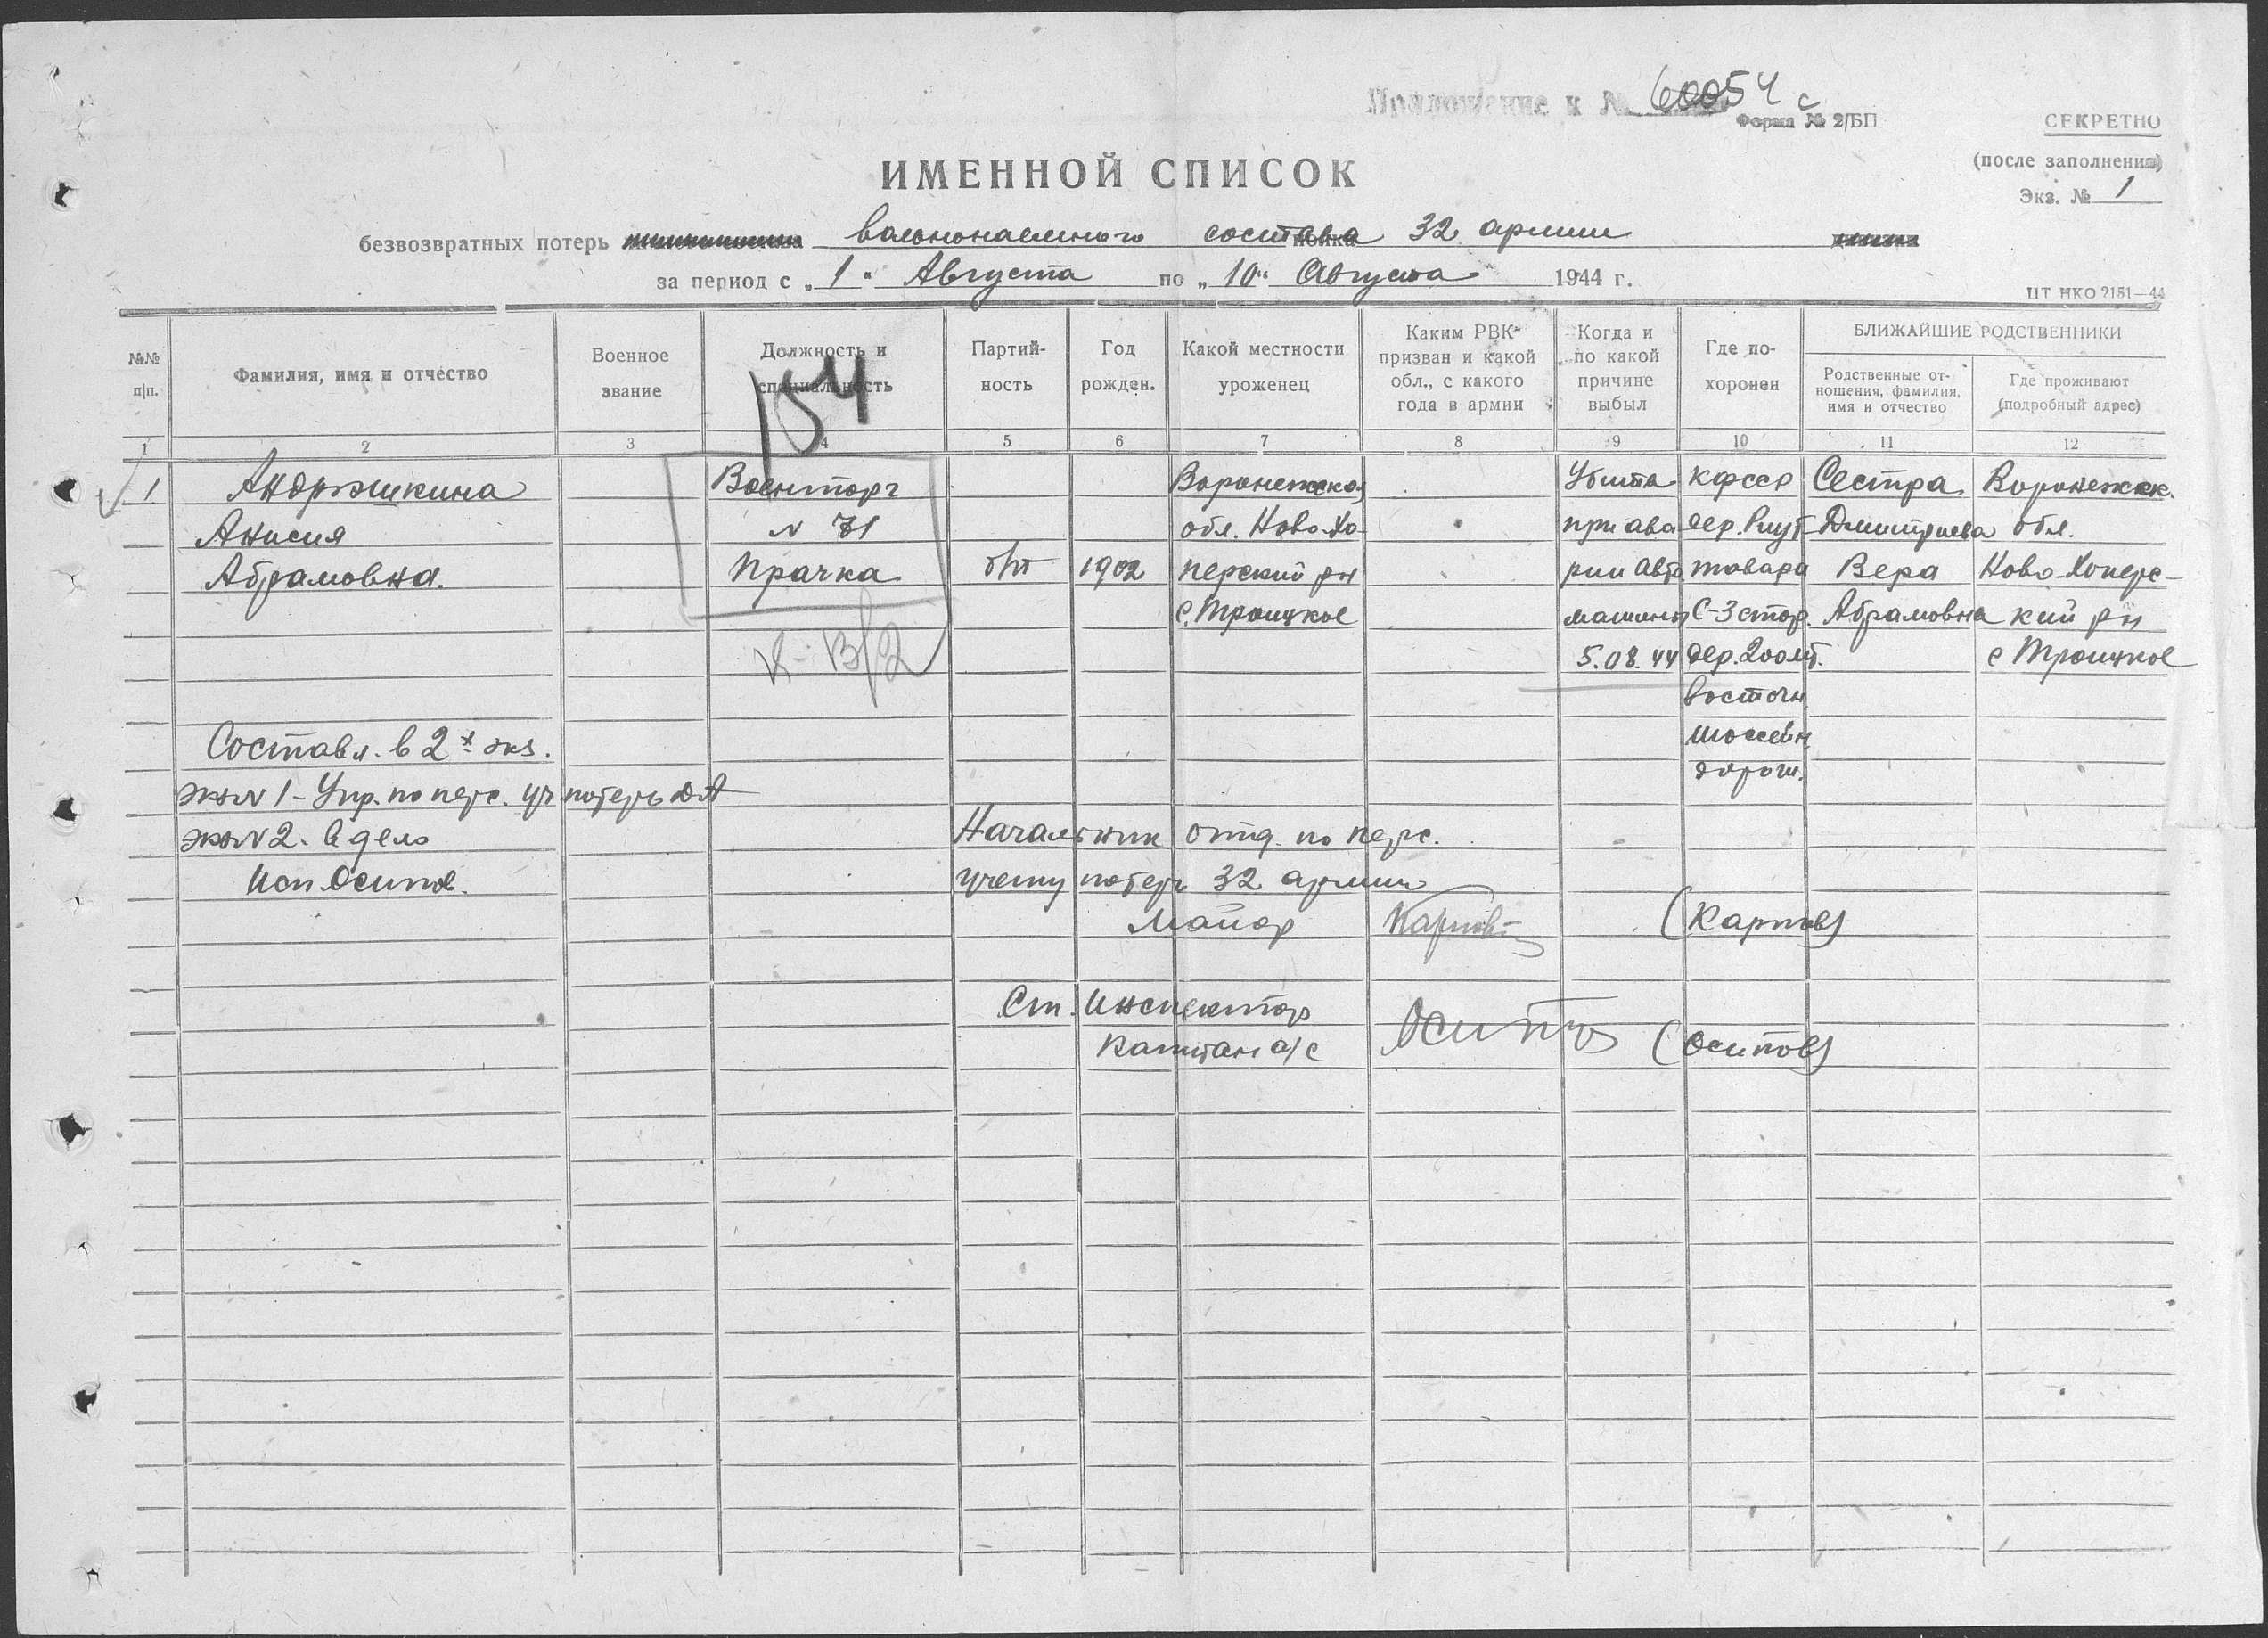 Приложение к № 60054 с
Форма № 2/БП
СЕКРЕТНО
(после заполнения)
Экз. № 1
ИМЕННОЙ СПИСОК
безвозвратных потерь вольнонаемного состава 32 армии
за период с „ 1 " Августа по „ 10 " Августа 1944 г.
ЦТ НКО 2151—44
№№ п/п.
Фамилия, имя и отчество
Военное звание
Должность и специальность
Партий-ность
Год рожден.
Какой местности уроженец
Каким РВК призван и какой обл., с какого года в армии
Когда и по какой причине выбыл
Где по-хоронен
БЛИЖАЙШИЕ РОДСТВЕННИКИ
Родственные от-ношения, фамилия, имя и отчество
Где проживают (подробный адрес)
1 2 3 4 5 6 7 8 9 10 11 12
154
1 Андрюшкина Военторг Воронежской Убита КФССР Сестра Воронежск.
Анисия N 71 обл. Ново-Хо- при ава дер. Дмитриева обл.
Абрамовна. Прачка б/п 1902 перский рн рии авто товара Вера Ново-Хоперс-
с. Троицкое машины С-З стор. Абрамовна кий рн
5.08.44 дер. 200 мт. с Троицкое
восточн.
шоссейн.
дороги.
Составл. в 2х экз.
экз N 1 - Упр. по перс. уч потерь ДА
экз N 2 - в дело
Исп. Осипов.
Начальник отд. по перс.
учету потерь 32 армии
Майор Карпов (Карпов)
Ст. Инспектор
Капитан а/с Осипов (Осипов)